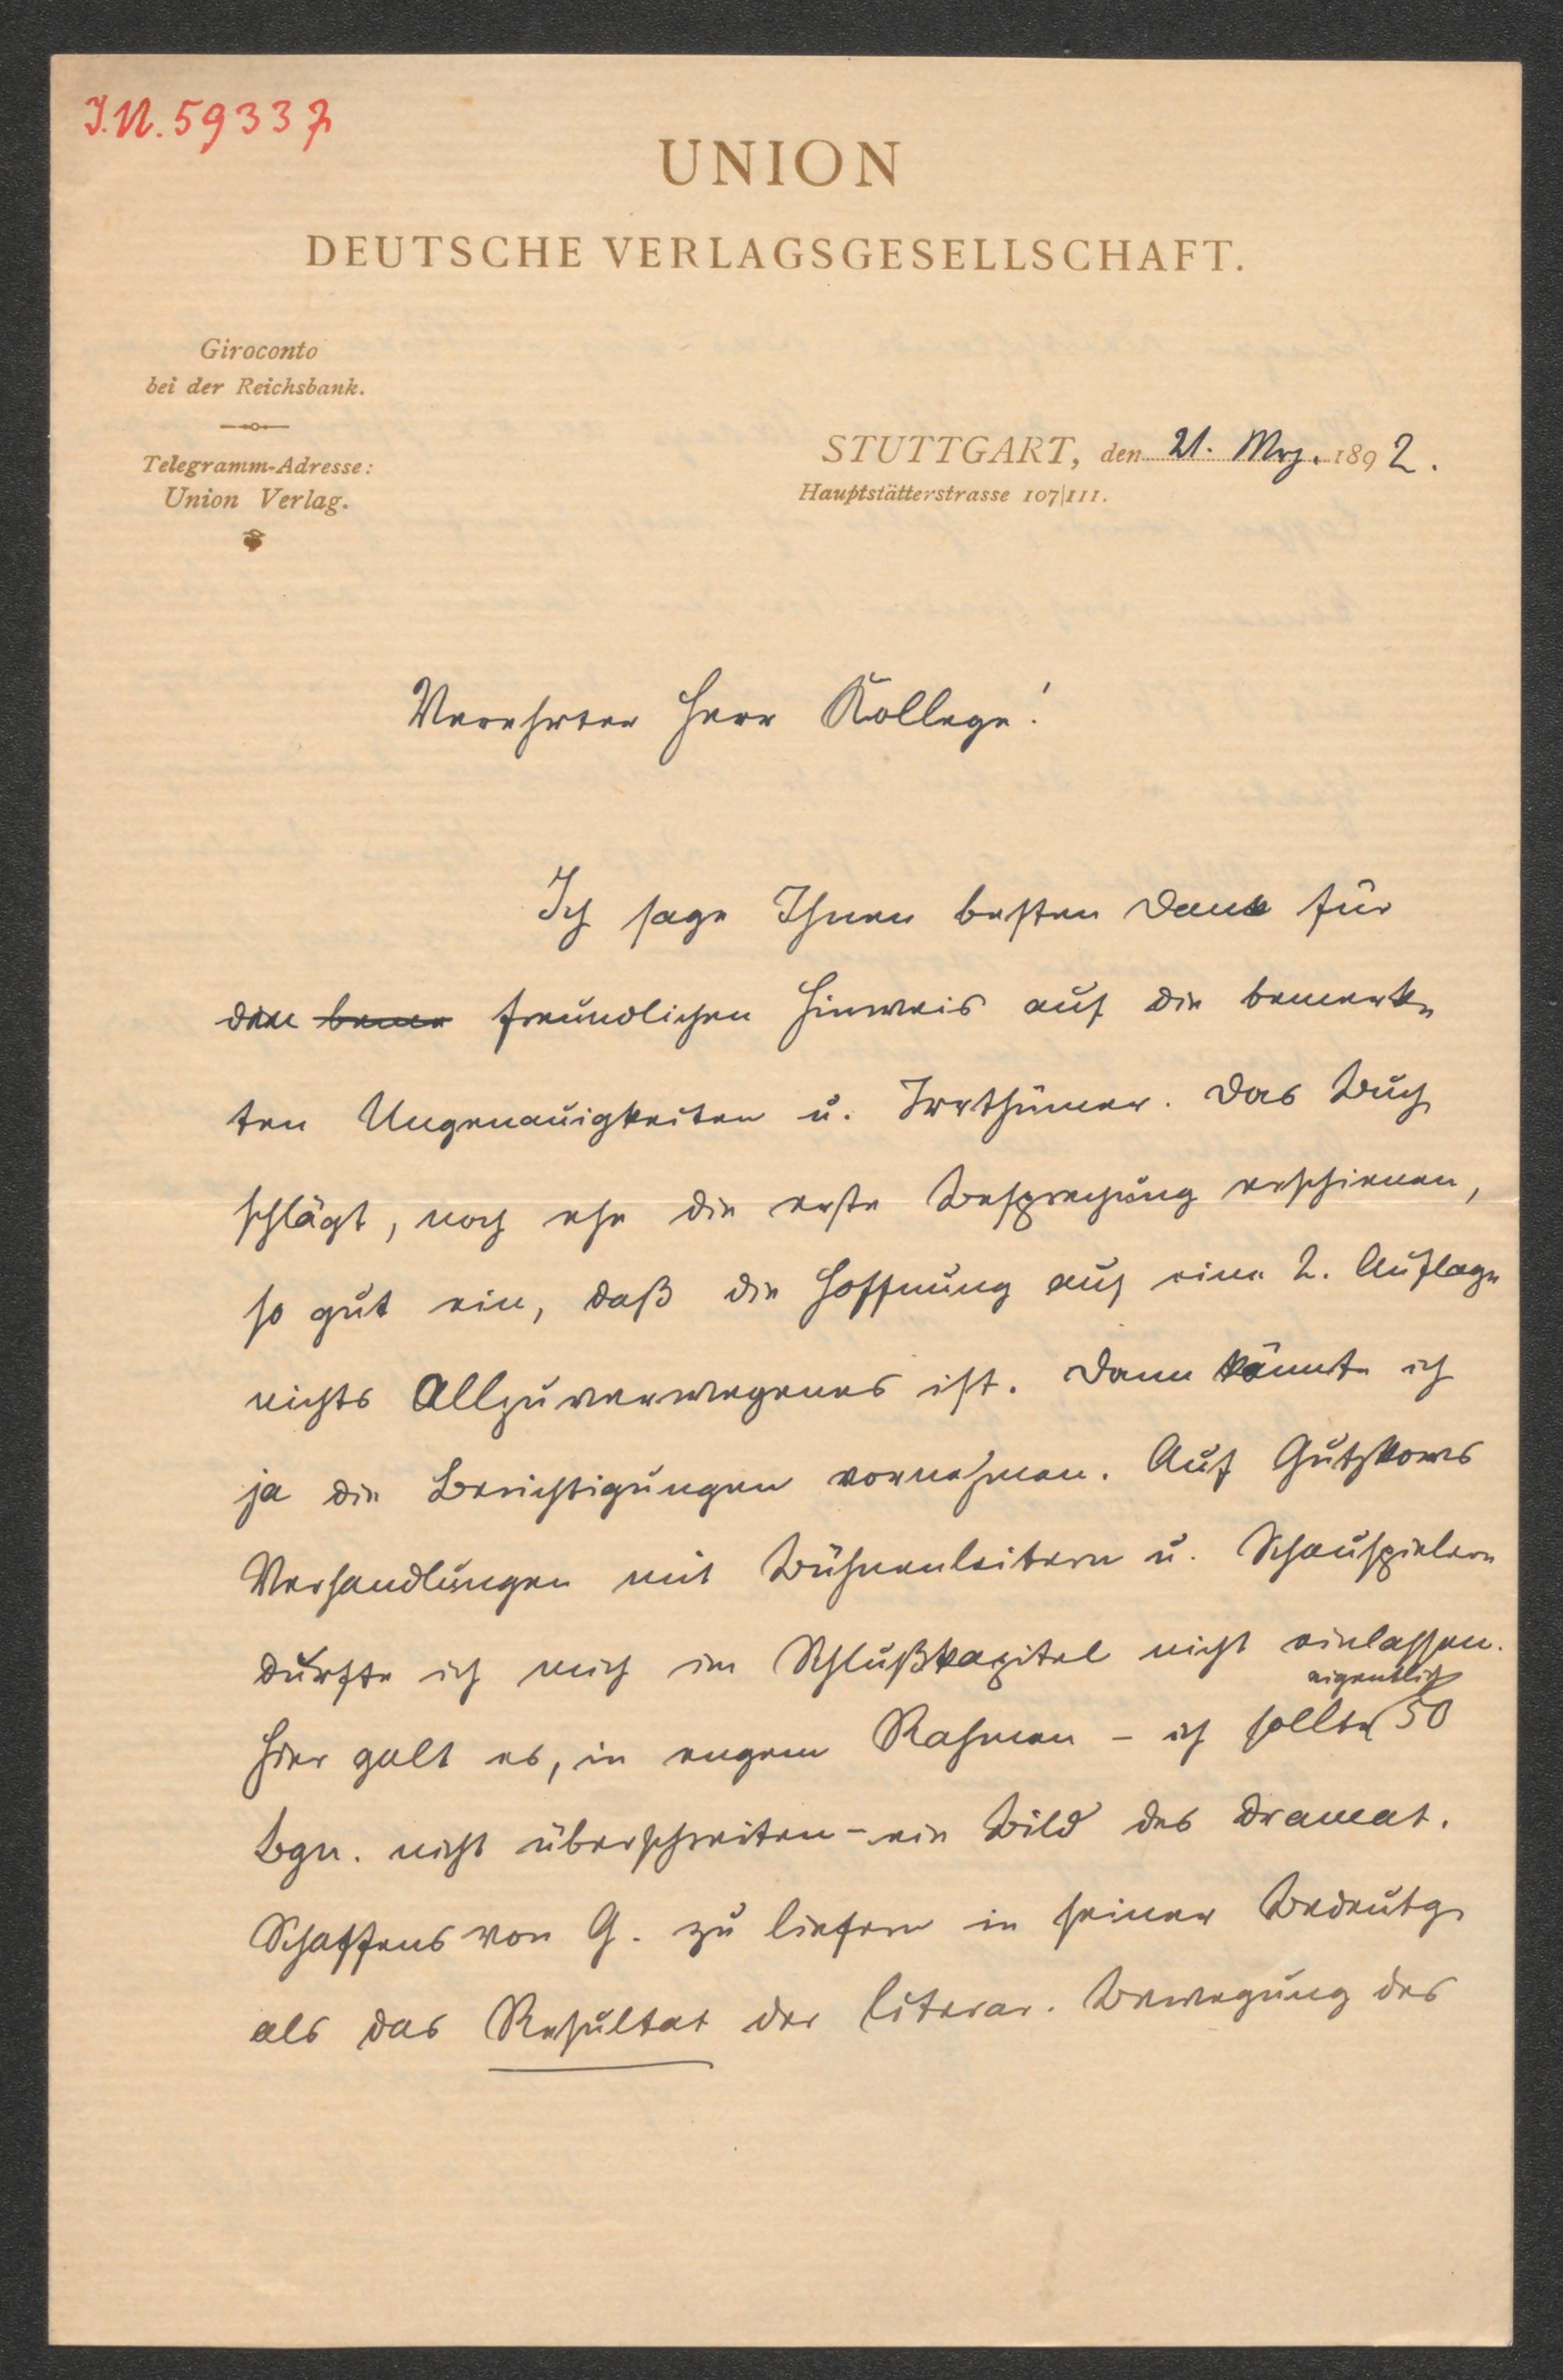 I.N. 59337
UNION
DEUTSCHE VERLAGSGESELLSCHAFT.
Giroconto
bei der Reichsbank.
Telegramm-Adresse:
Union Verlag.
STUTTGART, den 21. Mrz. 1892.
Hauptstätterstrasse 107|111.
Verehrter Herr Kollege!
Ich sage Ihnen besten Dank für
den freundlichen Hinweis auf die bemerk-
ten Ungenauigkeiten u. Irrthümer. Das Buch
schlägt, noch ehe die erste Besprechung erschienen,
so gut ein, daß die Hoffnung auf eine 2. Auflage
nichts Allzuverwegenes ist. Dann könnte ich
ja die Berichtigungen vornehmen. Auf Gutzkows
Verhandlungen mit Bühnenleitern u. Schauspielern
durfte ich mich im Schlußkapitel nicht einlassen.
Hier galt es, in engem Rahmen – ich sollte eigentlich 50
Bgn. nicht überschreiten – ein Bild des dramat.
Schaffens von G. zu liefern in seiner Bedeutg
als das Resultat der literar. Bewegung des